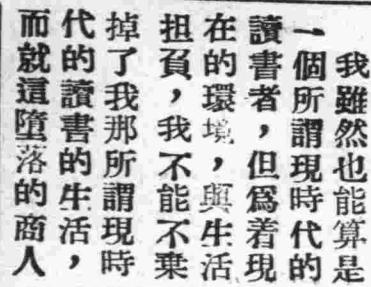 我雖然也能算是
一個所謂現時代的
讀書者，但爲着現
在的環境，與生活
担負，我不能不棄
掉了我那所謂現時
代的讀書的生活，
而就這墮落的商人